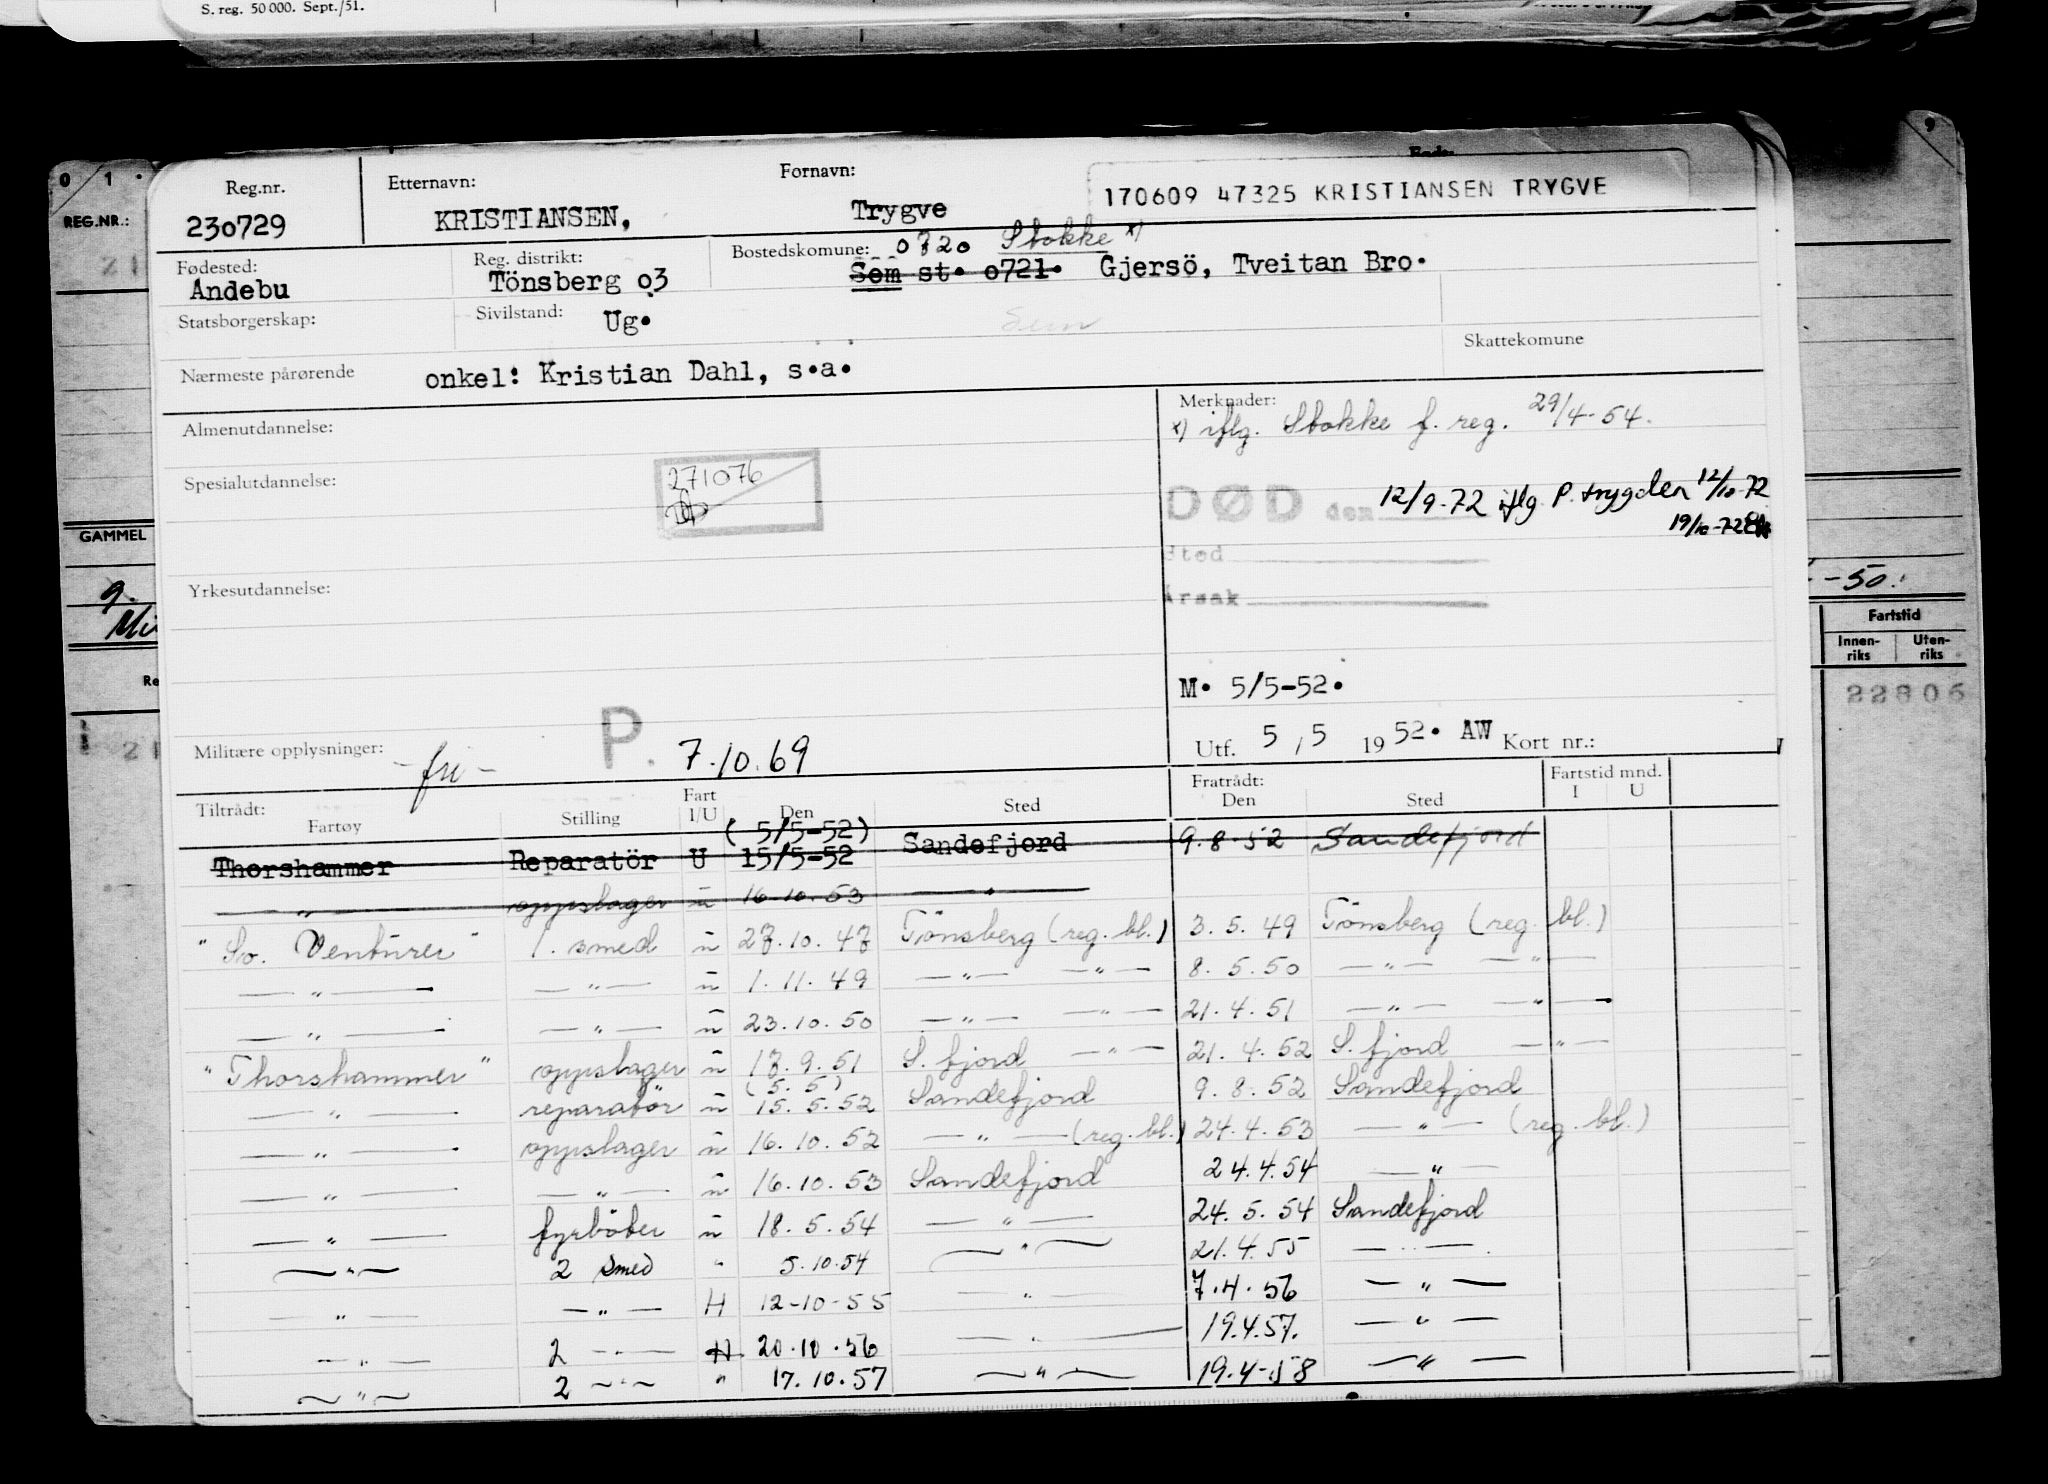 S. reg. 50 000. Sept./51.
0 1 .
REG.NR.:
GAMMEL
9.
-50.
Fartstid
Innen-riks Uten-riks
22806
Reg.nr. Etternavn: Fornavn:
170609 47325 KRISTIANSEN TRYGVE
230729 KRISTIANSEN, Trygve
Fødested: Reg. distrikt: Bostedskomune: 0720 Stokke x)
Andebu Tönsberg o3 Sem st. o721. Gjersö, Tveitan Bro.
Statsborgerskap: Sivilstand: Ug. Sem
Skattekomune
Nærmeste pårørende onkel: Kristian Dahl, s.a.
Almenutdannelse:
Merknader:
x) iflg. Stokke f. reg. 29/4-54.
Spesialutdannelse:
271076
DØD den 12/9-72 iflg P. trygden 12/10-72
19/10-72
Sted
Årsak
Yrkesutdannelse:
M. 5/5-52.
Utf. 5 / 5 1952. AW Kort nr.:
Militære opplysninger: - fri - P. 7.10.69
Tiltrådt: Fratrådt: Fartstid mnd.
Fartøy Stilling Fart I/U Den Sted Den Sted I U
(5/5-52)
Thorshammer Reparatör U 15/5-52 Sandefjord 9.8.52 Sandefjord
— " — oppslager u 16.10.53 — " —
"So. Venturer" 1. smed u 27.10.47 Tönsberg (reg. bl.) 3.5.49 Tönsberg (reg. bl.)
— " — — " — u 1.11.49 — " — — " — 8.5.50 — " — — " —
— " — — " — u 23.10.50 — " — — " — 21.4.51 — " — — " —
"Thorshammer" oppslager u 17.9.51 S. fjord — " — 21.4.52 S. fjord — " —
(5.5)
— " — reparatör u 15.5.52 Sandefjord 9.8.52 Sandefjord
— " — oppslager u 16.10.52 — " — (reg. bl.) 24.4.53 — " — (reg. bl.)
— " — — " — u 16.10.53 Sandefjord 24.4.54 — " —
— " — fyrböter u 18.5.54 — " — 24.5.54 Sandefjord
— " — 2 smed " 5.10.54 — " — 21.4.55 — " —
— " — — " — H 12-10-55 — " — 7.4.56 — " —
— " — 2 — " — H 20.10.56 — " — 19.4.57. — " —
— " — 2 — " — " 17.10.57 — " — 19.4-58 — " —